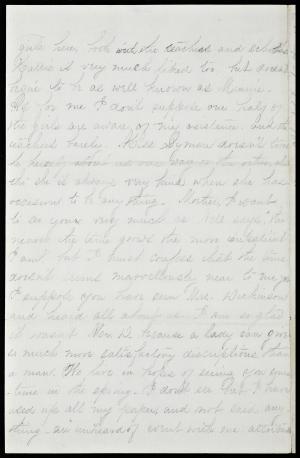 quite here, both with the teachers and scholars.
Hattie is very much liked too, but doesn't
begin to be as well known as Minnie.
As for me I don't suppose one half of
the girls are aware of my existence, and the
teachers barely. Miss Lyman doesn't
she is always very kind when she has
occasion to be anything. Mother, I want
to see you very much as Nell says, "the
nearer the time grows the more impatient
I am" but I must confess that the time
doesn't seem marvellously near to me yet.
I suppose you have seen Mrs. Dickinson
and heard all about us. I am so glad
it wasn't Mr. D. because a lady can give
so much more satisfactory descriptions than
a man. We live in hopes of seeing you some-
time in the spring. I don't see but I have
used up all my paper and not said any
thing - an unheard of event with me